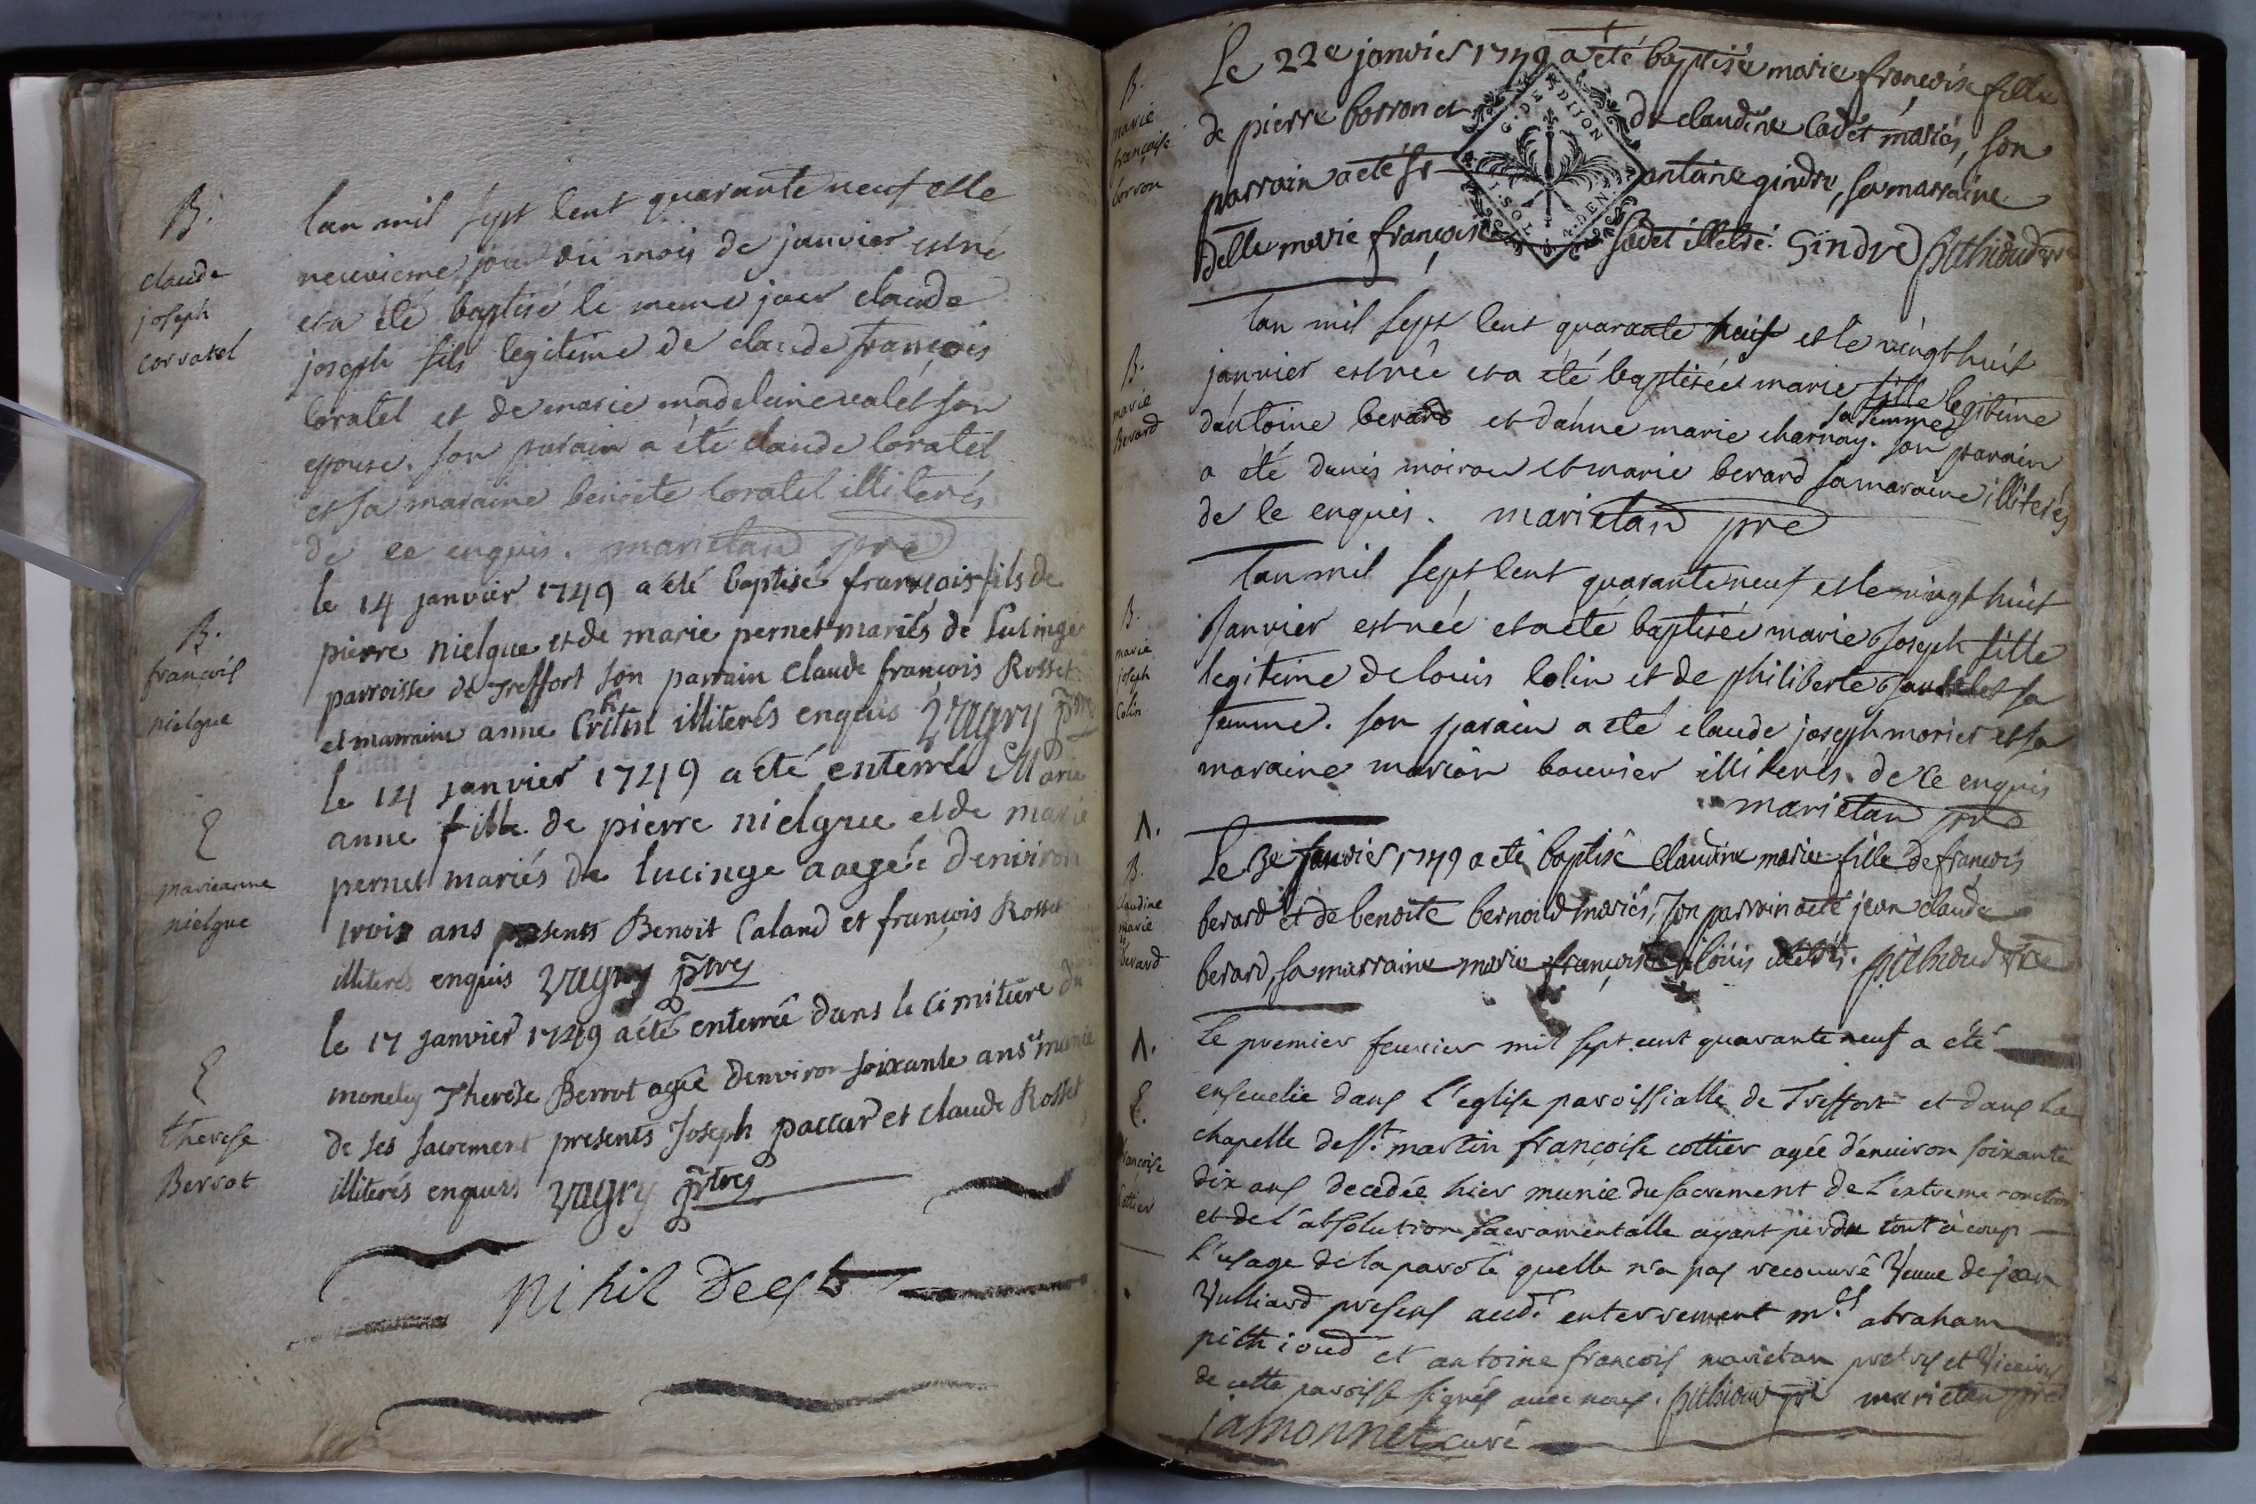 B.
claude
joseph
corratel
lan mil sept Cent quarante neuf et le
neuvieme jour du mois de janvier est né
et a été baptisé le meme jour claude
joseph fils legitime de claude françois
Coratel et de marie madeleine valet son
epouse. son parain a été claude Coratel
et sa maraine benoite Coratel illiterés
de ce enquis. marietand pre
B.
françois
nielgue
le 14 janvier 1749 a été baptisé françois fils de
pierre nielgue et de marie pernet mariés de Lusinge
parroisse de Treffort son parrain Claude françois Rosset
et marraine anne illiterés enquis Vagry ptre
E
marieanne
nielgue
le 14 janvier 1749 a été enterrée Marie
anne fille de pierre nielgue et de marie
pernet mariés de lucinge aagée denviron
trois ans presents Benoit Caland et françois Rosset
illiterés enquis Vagry ptre
E
therese
Berrot
le 17 janvier 1749 a été enterrée dans le cimitiere du
Therese Berrot agée denviron soixante ans munie
de ses sacrement presents Joseph paccard et claude Rosset
illiterés enquis Vagry ptre
nihil deest
B.
marie
françoise
borron
Le 22e janvier 1749 a été baptisée marie françoise fille
de pierre borron et de claudine Cadet mariés, son
parrain a été Sr antoine gindre, sa marraine
delle marie françoise Cadet illetré. Gindre pithioud
G. DE DIJON
1. SOL 4. DEN
B.
marie
Berard
lan mil sept Cent quarante neuf et le vingt huit
janvier est née et a été baptisée marie fille legitime
dantoine berard et danne marie charnay sa femme. son parain
a été denis moiroud et marie berard sa maraine illiterés
de ce enquis. marietand pre
B.
marie
joseph
Colin
lan mil sept Cent quarante neuf et le vingt huit
Janvier est née et a été baptisée marie Joseph fille
legitime de louis Colin et de philiberte sa
femme. son parain a été claude joseph morier et sa
maraine marion bouvier illiterés de ce enquis
marietan pre
Λ.
B.
claudine
marie
berard
Le 3e fevrier 1749 a été baptisé claudine marie fille de françois
berard et de benoite bernoild mariés, son parrain a été jean claude
berard, sa marraine marie françoise illetrés. pithioud
Λ.
E.
françoise
Cottier
Le premier feurier mil sept cent quarante neuf a été
enseuelie dans l'eglise paroissialle de Treffort et dans la
chapelle de st. martin françoise cottier agée d'enuiron soixante
dix ans decedée hier munie du sacrement de l'extreme onction
et de l'absolution sacramentalle ayant perdu tout à coup
l'usage de la parole quelle n'a pas recouuré Veuue de jean
Vulliard presens aud. enterrement mrs abraham
pithioud et antoine françois marietan pretres et Vicaires
de cette paroisse signés auec nous. pithioud pre marietan pre
jamonnet curé